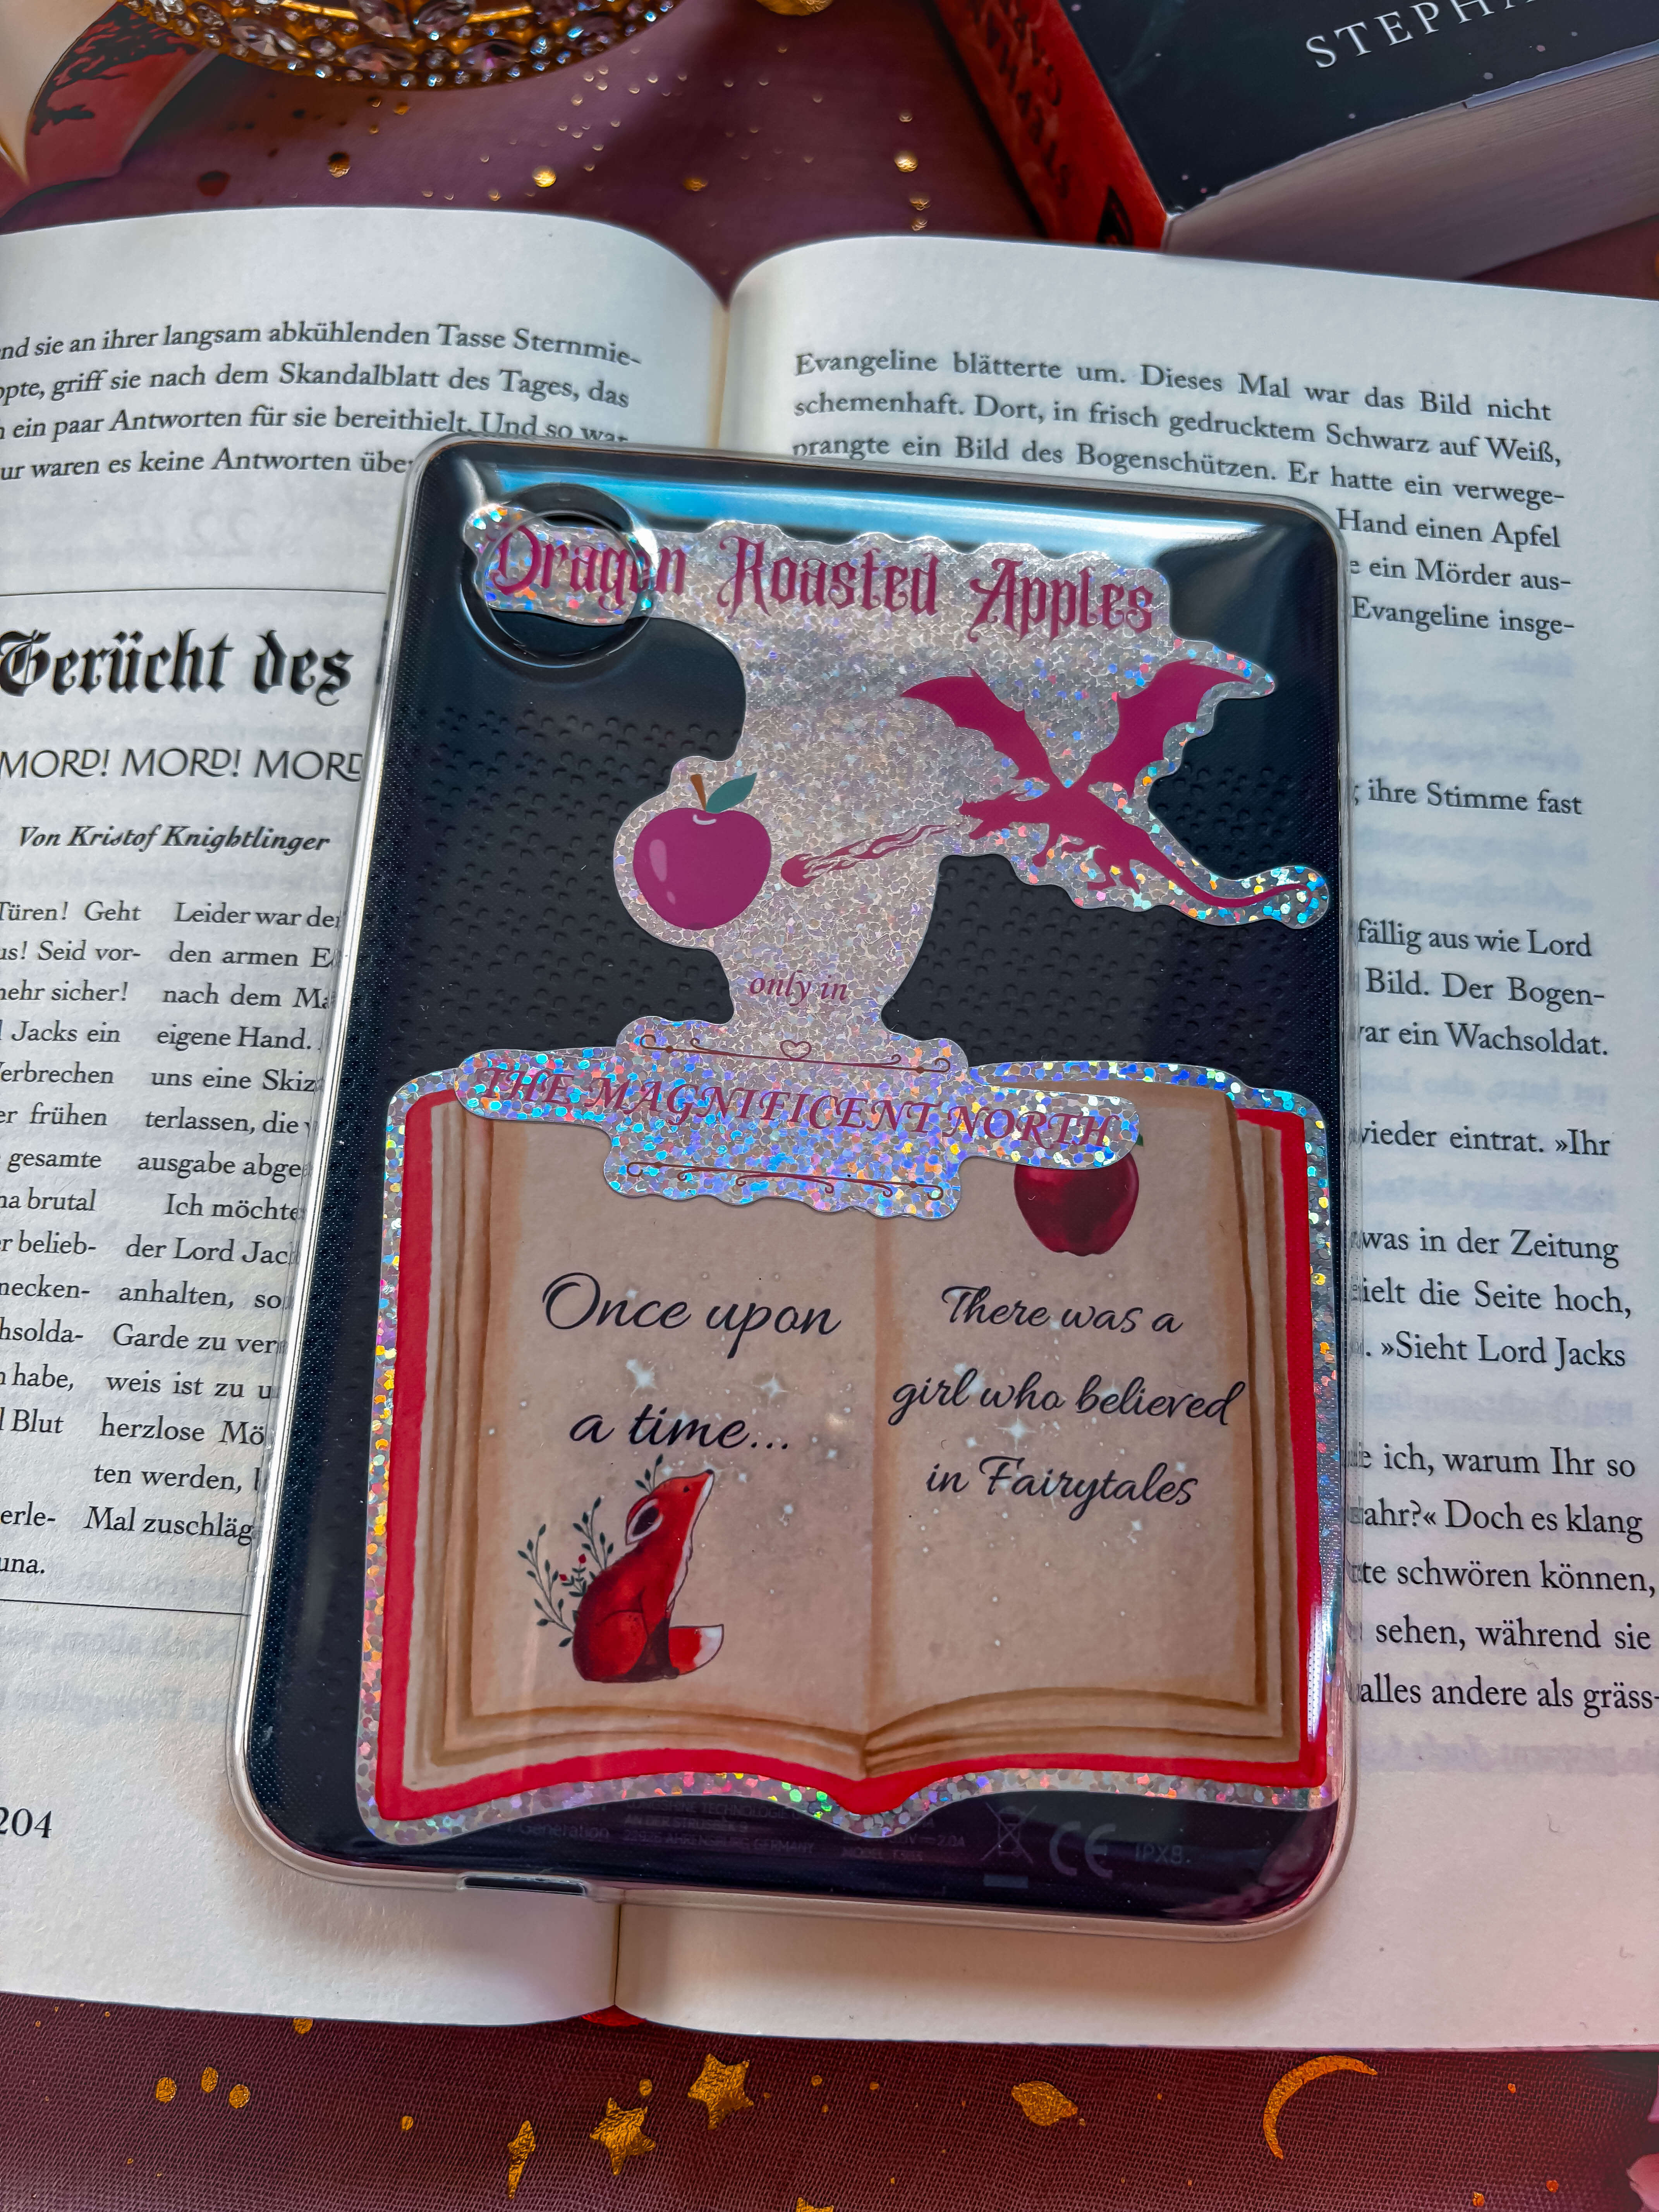 STEPHA
nd sie an ihrer langsam abkühlenden Tasse Sternmie-
ppte, griff sie nach dem Skandalblatt des Tages, das
ein paar Antworten für sie bereithielt. Und so war
ur waren es keine Antworten übe
Gerücht des
MORD! MORD! MORD
Von Kristof Knightlinger
Türen! Geht
us! Seid vor-
mehr sicher!
Jacks ein
erbrechen
er frühen
gesamte
na brutal
r belieb-
necken-
hsolda-
habe,
Blut
erle-
una.
Leider war de
den armen E
nach dem Ma
eigene Hand.
uns eine Skiz
terlassen, die
ausgabe abge
Ich möchte
der Lord Jac
anhalten, so
Garde zu ver
weis ist zu u
herzlose Mö
ten werden,
Mal zuschläg
204
Evangeline blätterte um. Dieses Mal war das Bild nicht
schemenhaft. Dort, in frisch gedrucktem Schwarz auf Weiß,
prangte ein Bild des Bogenschützen. Er hatte ein verwege-
Hand einen Apfel
e ein Mörder aus-
Evangeline insge-
; ihre Stimme fast
fällig aus wie Lord
Bild. Der Bogen-
var ein Wachsoldat.
wieder eintrat. »Ihr
was in der Zeitung
ielt die Seite hoch,
. »Sieht Lord Jacks
e ich, warum Ihr so
ahr?« Doch es klang
te schwören können,
sehen, während sie
alles andere als gräss-
Dragon Roasted Apples
only in
THE MAGNIFICENT NORTH
Once upon
a time...
There was a
girl who believed
in Fairytales
Generation
AN DER STRUSBEK
22926 AHRENSBURG, GERMANY
2.0A
CE
IPX8.